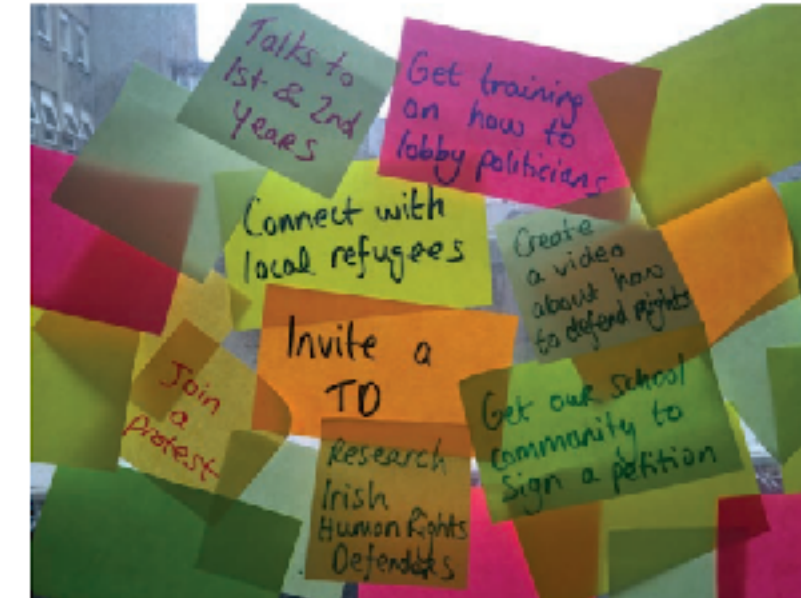 Talks to
1st & 2nd
Years
Get training
on how to
lobby politicians
Connect with
local refugees
Create
a video
about how
to defend Rights
Invite a
TD
Join
a
protest
Get our school
community to
sign a petition
Research
Irish
Human Rights
Defenders